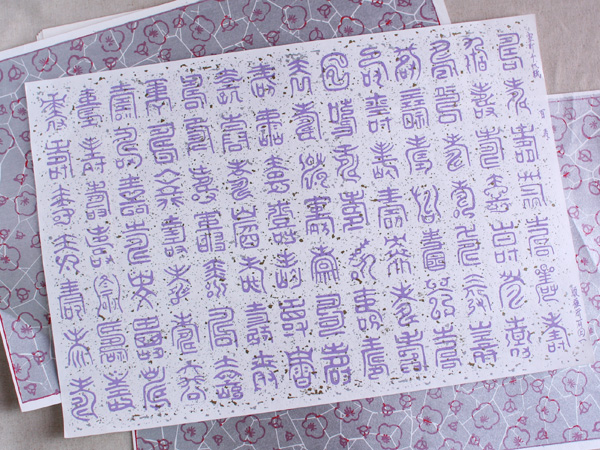 壽壽壽壽壽壽壽
壽壽壽壽壽壽壽
壽壽壽壽壽壽壽
壽壽壽壽壽壽壽
壽壽壽壽壽壽壽
壽壽壽壽壽壽壽
壽壽壽壽壽壽壽
壽壽壽壽壽壽壽
壽壽壽壽壽壽壽
壽壽壽壽壽壽壽
壽壽壽壽壽壽壽
壽壽壽壽壽壽壽
壽壽壽壽壽壽壽
壽壽壽壽壽壽壽